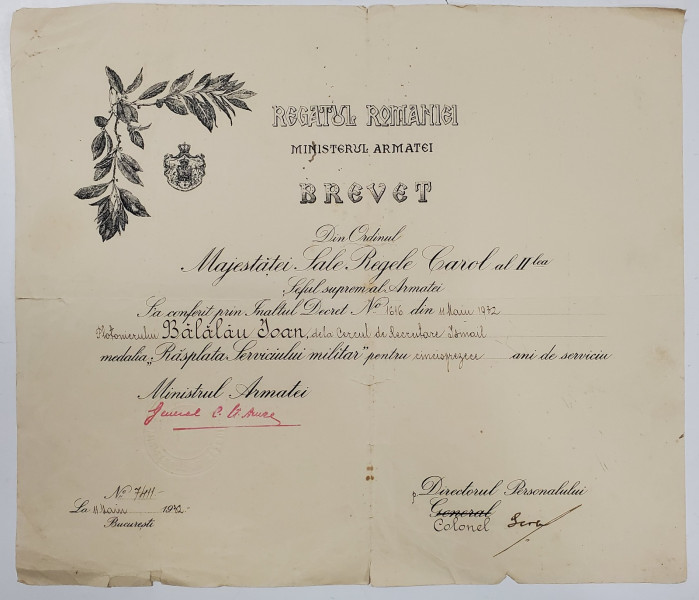 REGATUL ROMANIEI
MINISTERUL ARMATEI
BREVET
Din Ordinul
Majestăței Sale Regele Carol al II lea
Șeful suprem al Armatei
S'a conferit prin Inaltul Decret No 1616 din 11 Maiu 1932
Plotonierului Bălălău Ioan, dela Cercul de Recrutare Ismail
medalia „Răsplata Serviciului militar" pentru cincisprezece ani de serviciu
Ministrul Armatei
General C.
No 7411
La 11 Maiu 1932
București
p Directorul Personalului
General
Colonel